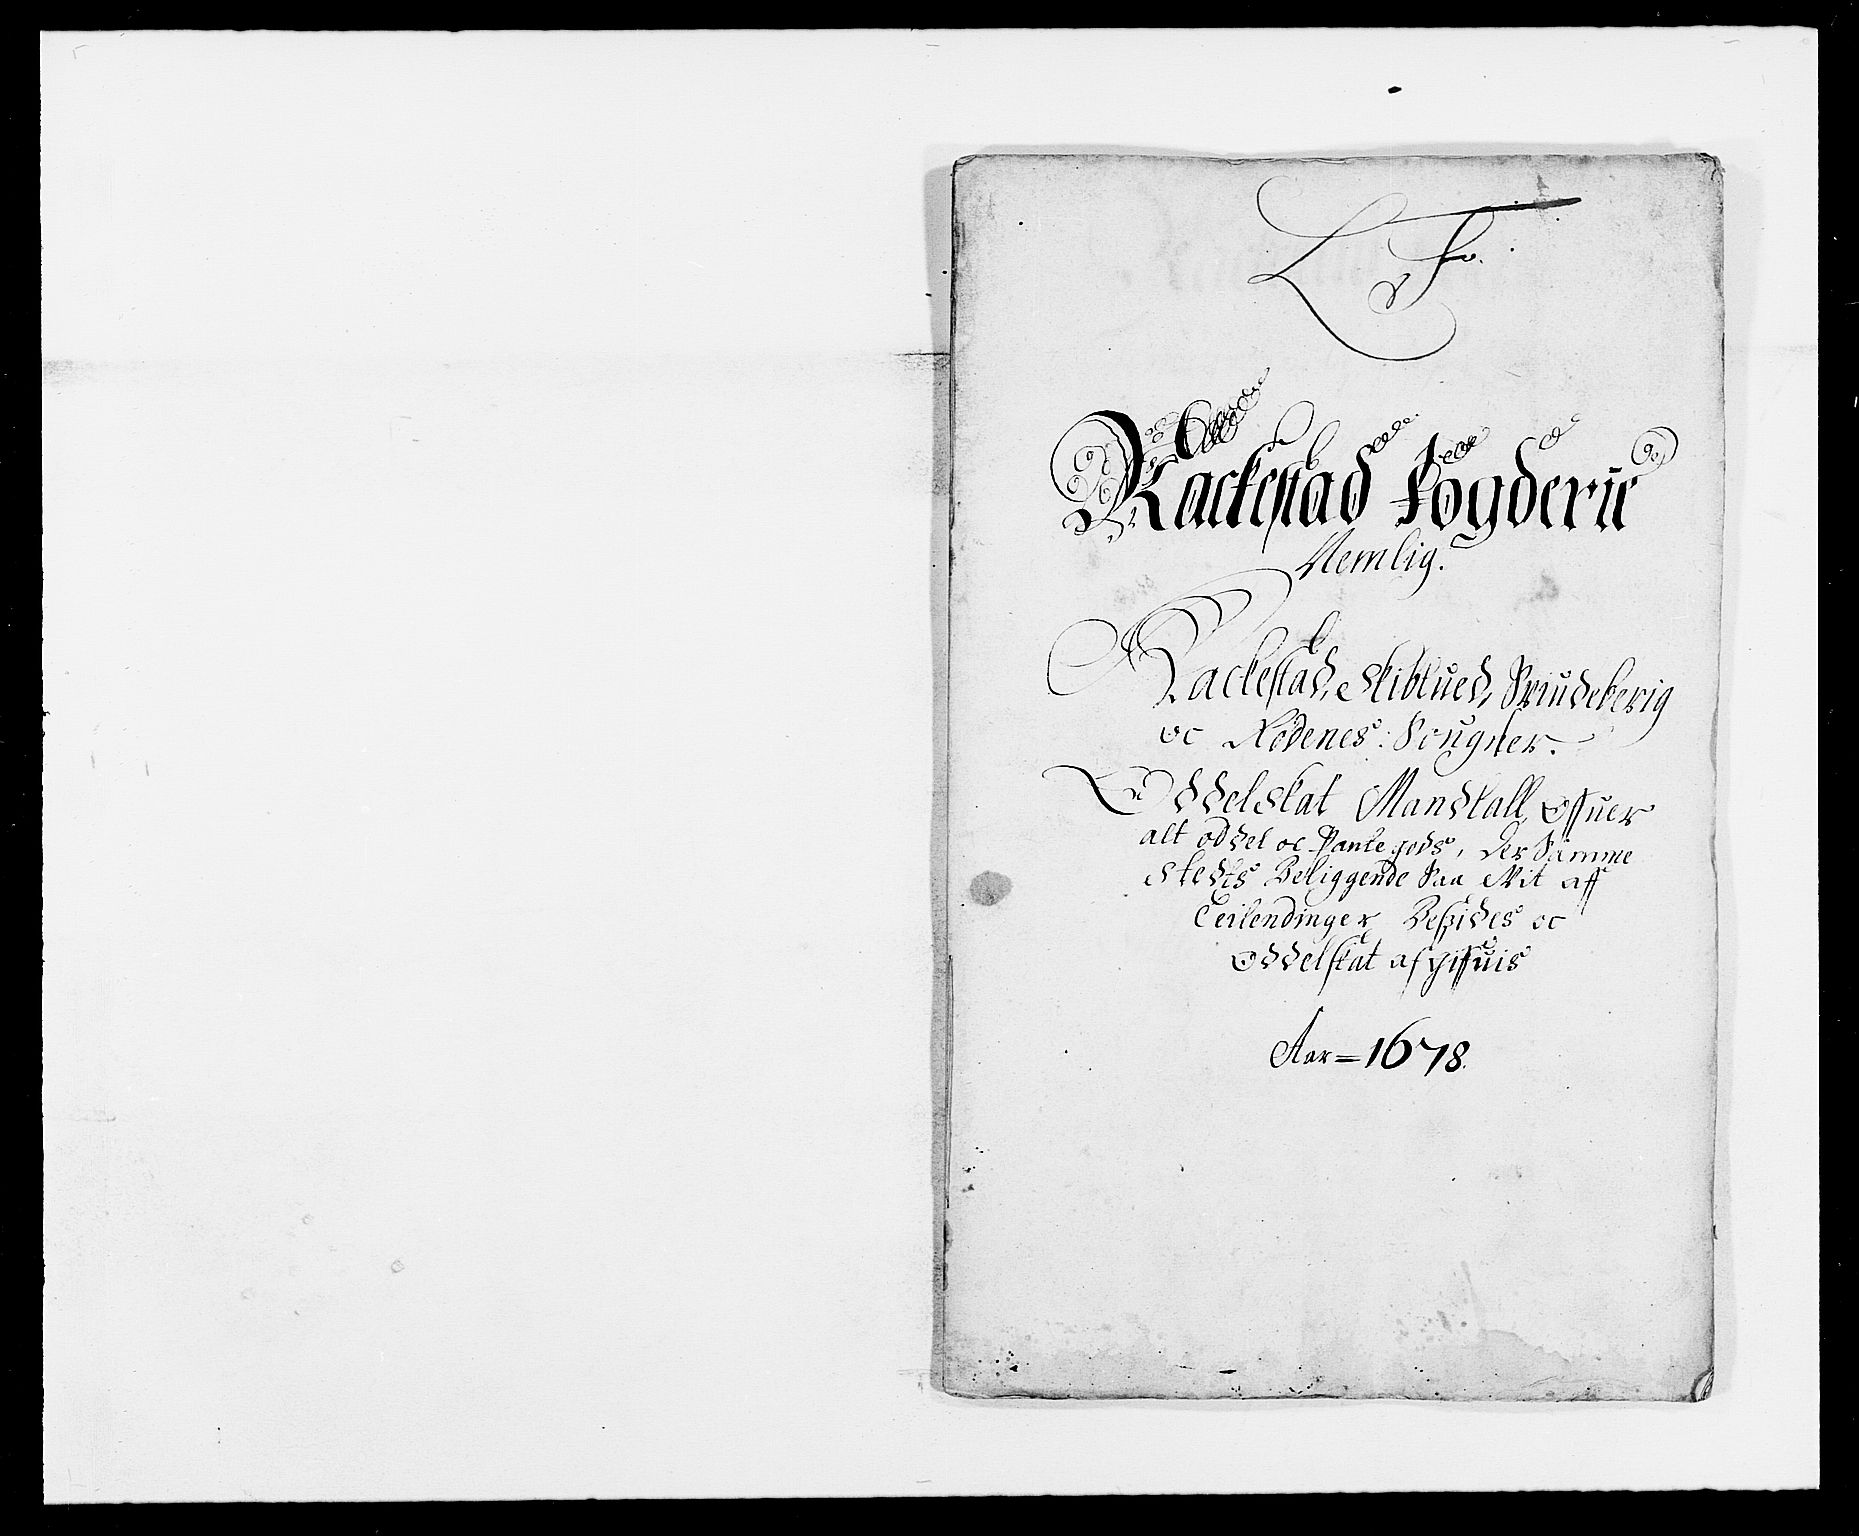 Rackestad fögderie
Nemlig.
Rackestad, Skibtued, Spiudeberig
oc Rödenes: Sougner.
Oddelskat Mandtall, Offuer
alt oddel oc Pantegods, der Samme
stedts Beliggende Saa Vit aff
Teilendinger Besides oc
Oddelskat afgiffuis
Aar = 1678.